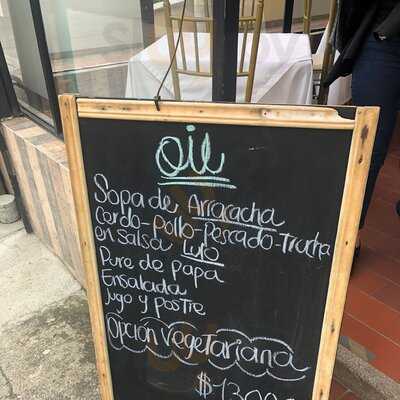 oil
Sopa de Arracacha
cerdo-pollo-Pescado-Trucha
en salsa Lulo
Pure de papa
Ensalada
jugo y postre
Opción vegetariana